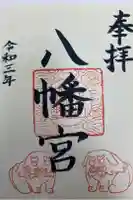 奉拝
八幡宮
令和三年